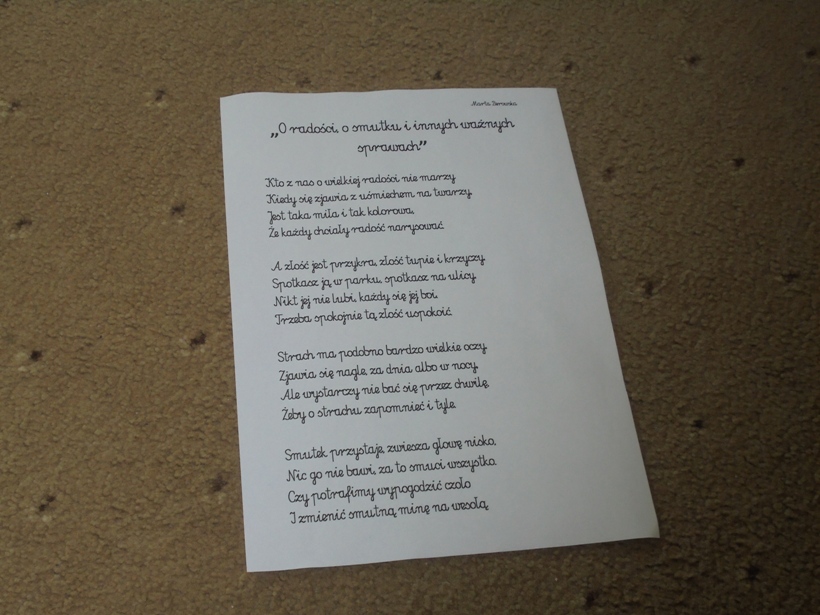 Marta
„O radości, o smutku i innych ważnych
sprawach”
Kto z nas o wielkiej radości nie marzy
Kiedy się zjawia z uśmiechem na twarzy
Jest taka miła i tak kolorowa,
Że każdy chciały radość narysować
A złość jest przykra, złość tupie i krzyczy
Spotkasz ją w parku, spotkasz na ulicy
Nikt jej nie lubi, każdy się jej boi,
Trzeba spokojnie tą złość uspokoić
Strach ma podobno bardzo wielkie oczy
Zjawia się nagle, za dnia albo w nocy
Ale wystarczy nie bać się przez chwilę,
Żeby o strachu zapomnieć i tyle.
Smutek przystaje, zwiesza głowę nisko,
Nic go nie bawi, za to smuci wszystko.
Czy potrafimy wypogodzić czoło
I zmienić smutną minę na wesołą